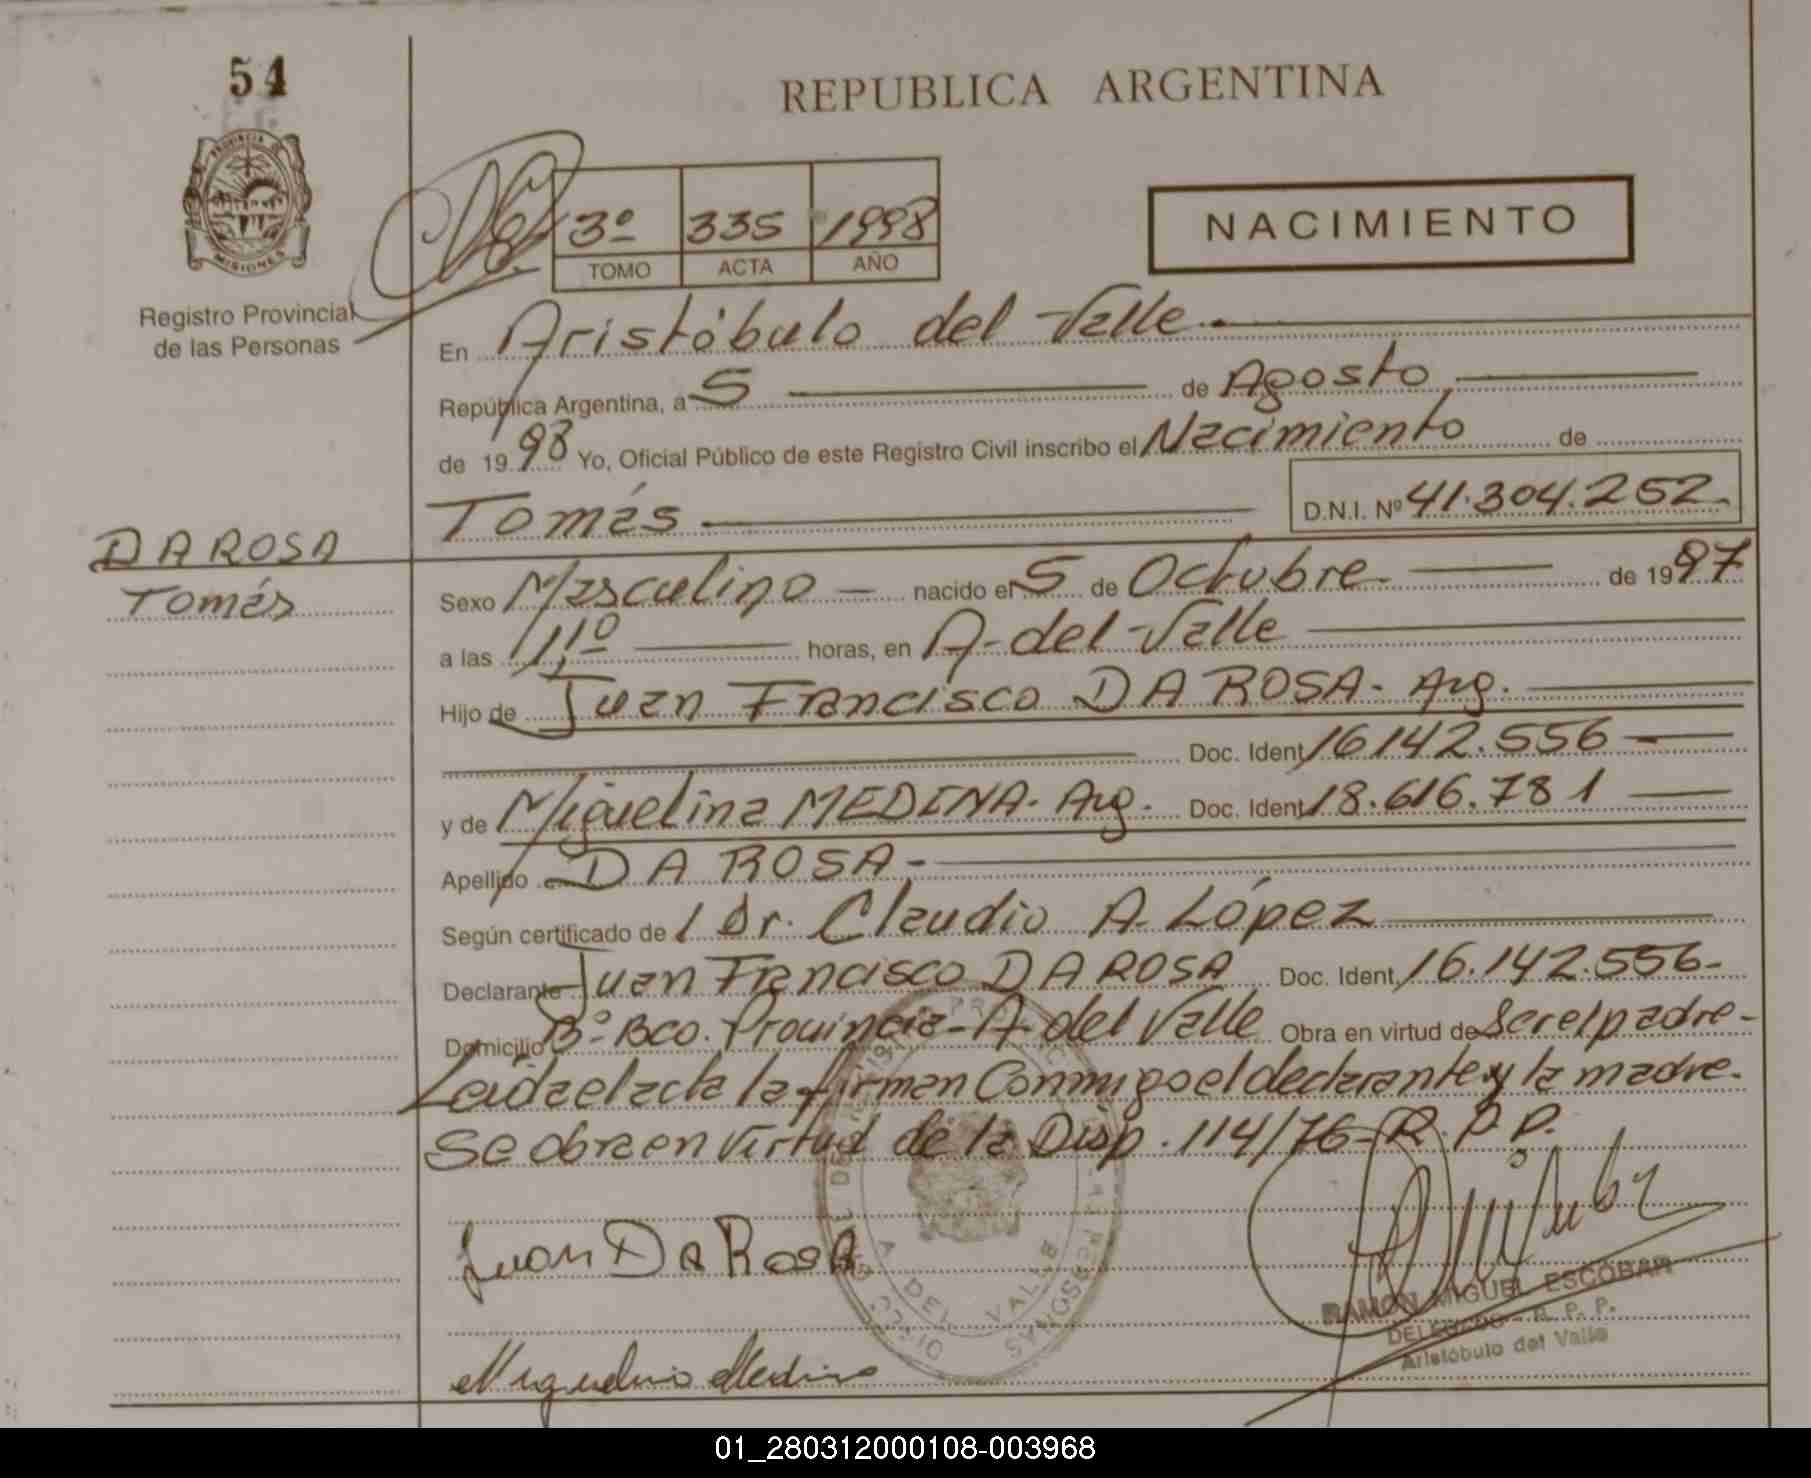 54
REPUBLICA ARGENTINA
PROVINCIA DE
MISIONES
Registro Provincial
de las Personas
3º 335 1998
TOMO ACTA AÑO
NACIMIENTO
En Aristóbulo del Valle
República Argentina, a 5 de Agosto
de 1998 Yo, Oficial Público de este Registro Civil inscribo el Nacimiento de
Tomás D.N.I. Nº 41.304.252
DA ROSA
Tomás
Sexo Masculino nacido el 5 de Octubre de 1997
a las 11º horas, en A. del Valle
Hijo de Juan Francisco DA ROSA - Arg.
Doc. Ident. 16.142.556
y de Miguelina MEDINA - Arg. Doc. Ident. 18.616.781
Apellido DA ROSA
Según certificado de l Dr. Claudio A. López
Declarante Juan Francisco DA ROSA Doc. Ident. 16.142.556
Domicilio Bº Bco. Provincia - A. del Valle Obra en virtud de Ser el padre -
Leida el acta la firman Conmigo el declarante y la madre.
Se obra en virtud de la Disp. 114/76 - R.P.P.
Juan Da Rosa
Miguelina Medina
A. DEL VALLE
RAMON MIGUEL ESCOBAR
DELEGADO - R. P. P.
Aristóbulo del Valle
01_280312000108-003968